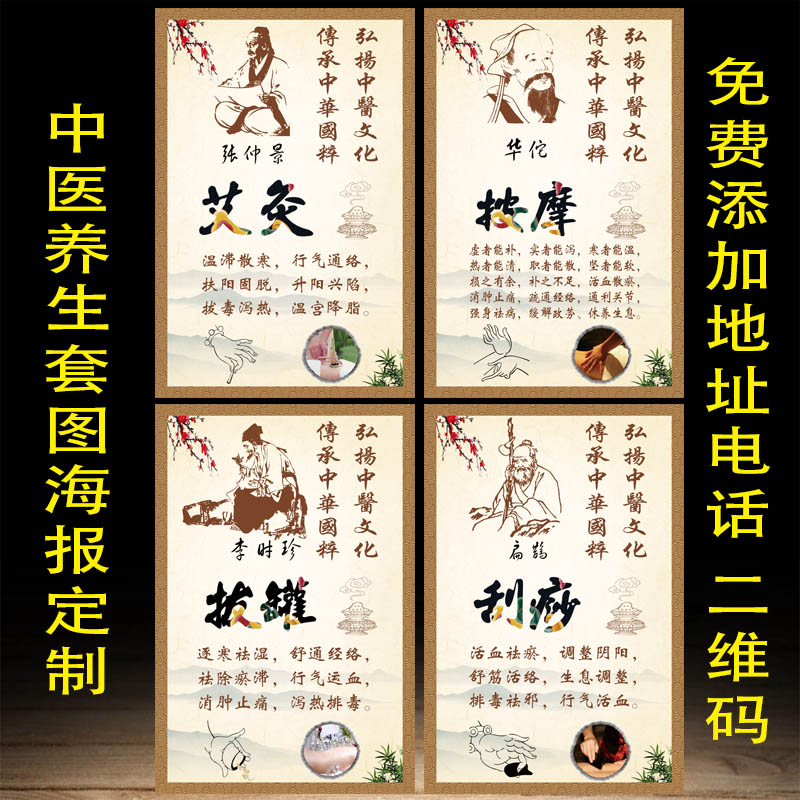 中医养生套图海报定制
弘揚中醫文化
傳承中華國粹
张仲景
艾灸
温滞散寒，行气通络，
扶阳固脱，升阳兴陷，
拔毒泻热，温宫降脂。
弘揚中醫文化
傳承中華國粹
华佗
按摩
虚者能补，实者能泻，寒者能温，
热者能清，职者能散，坠者能软，
损之有余，补之不足，活血散瘀，
消肿止痛，疏通经络，通利关节，
强身祛病，缓解政劳、休养生息。
弘揚中醫文化
傳承中華國粹
李时珍
拔罐
逐寒祛湿，舒通经络，
祛除瘀滞，行气运血，
消肿止痛，泻热排毒。
弘揚中醫文化
傳承中華國粹
扁鹊
刮痧
活血祛瘀，调整阴阳，
舒筋活络，生息调整，
排毒祛邪，行气活血。
免费添加地址电话 二维码